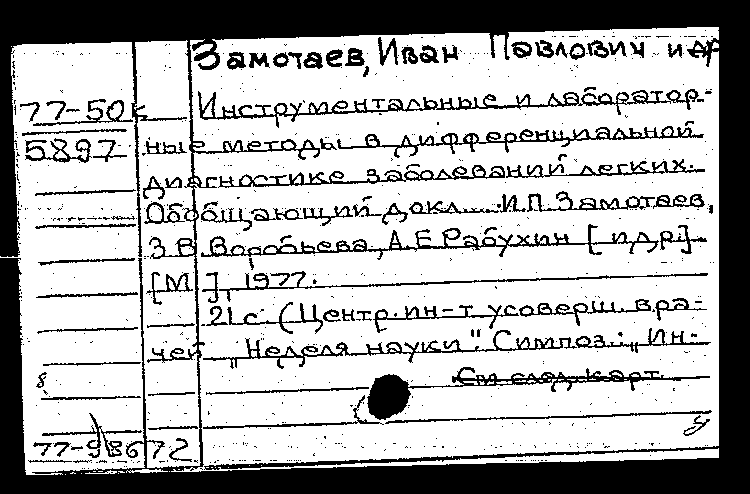 Замотаев, Иван Павлович и др
77-50к Инструментальные и лаборатор-
5897 ные методы в дифференциальной
диагностике заболеваний легких.
Обобщающий докл.... И.П. Замотаев,
З.В. Воробьева, А.Е. Рабухин [и др.]
[М.], 1977.
21 с (Центр. ин-т усоверш. вра-
чей „Неделя науки". Симпоз.: „Ин-
См след. карт.
8
77-98672